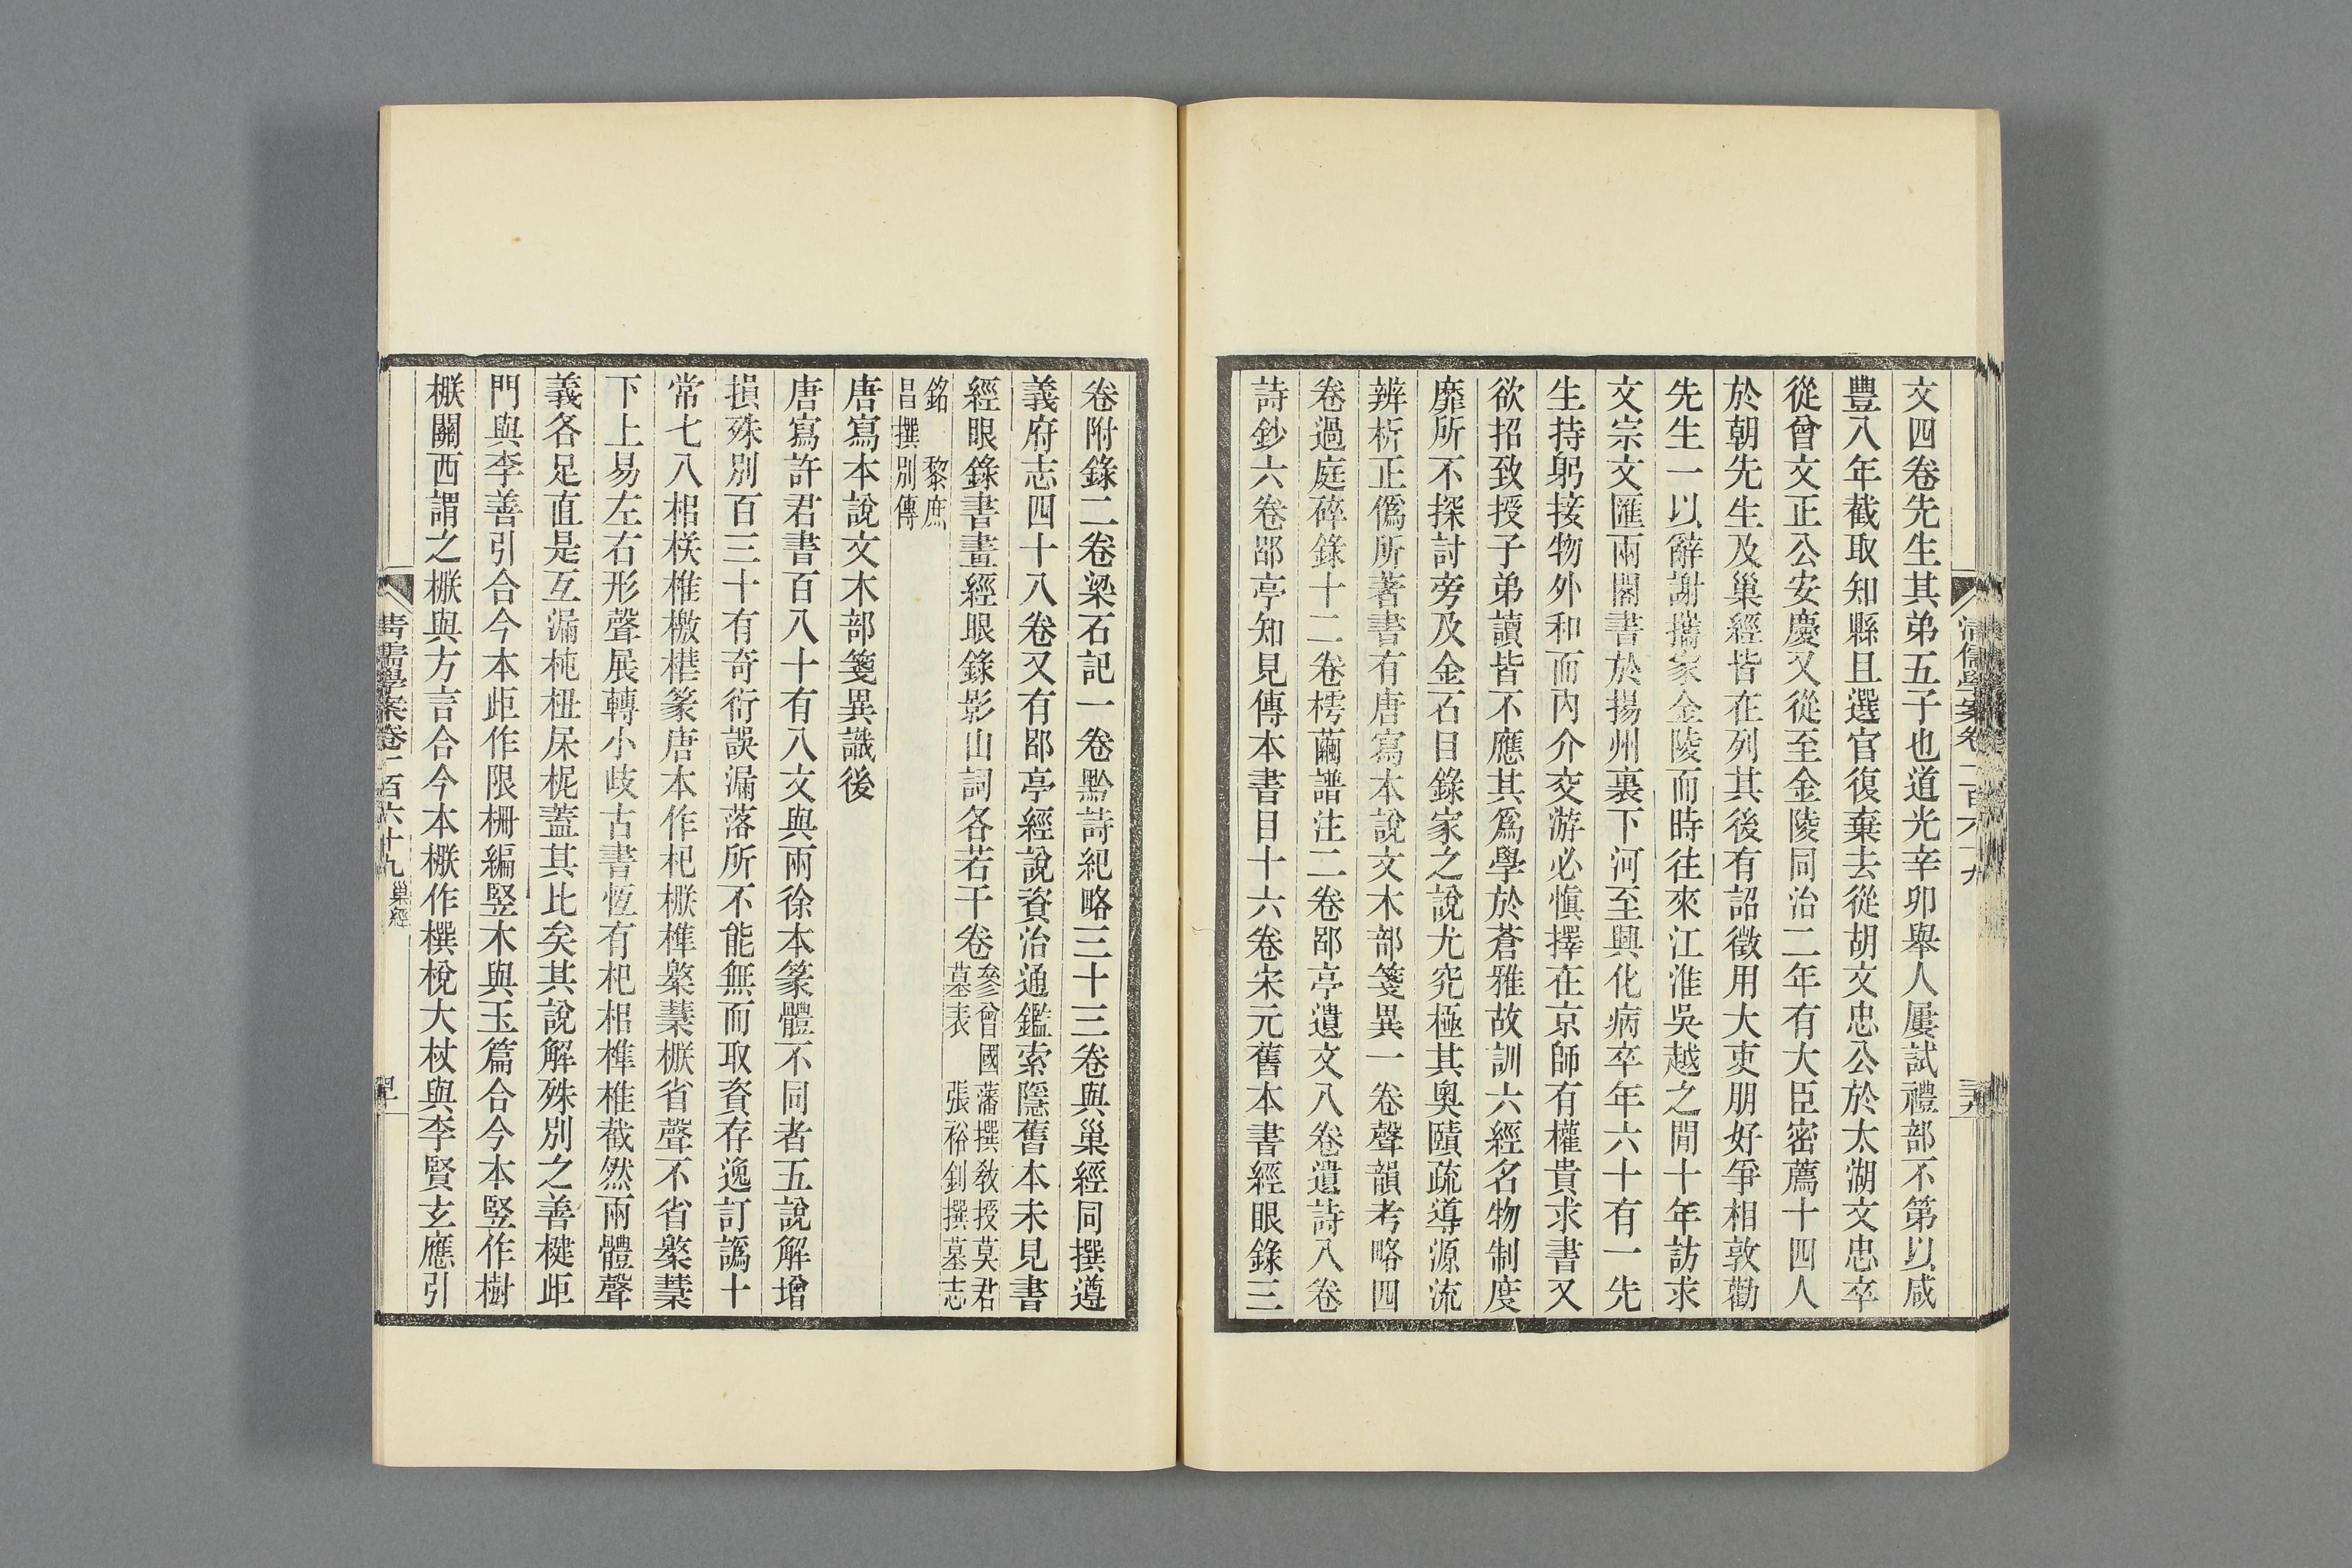 文四卷先生其弟五子也道光辛卯舉人屢試禮部不第以咸
豐八年截取知縣且選官復棄去從胡文忠公於太湖文忠卒
從曾文正公安慶又從至金陵同治二年有大臣密薦十四人
於朝先生及巢經皆在列其後有詔徵用大吏朋好爭相敦勸
先生一以辭謝攜家金陵而時往來江淮吳越之閒十年訪求
文宗文匯兩閣書於揚州裏下河至興化病卒年六十有一先
生持躬接物外和而內介交游必愼擇在京師有權貴求書又
欲招致授子弟讀皆不應其爲學於蒼雅故訓六經名物制度
靡所不探討旁及金石目錄家之說尤究極其奧賾疏導源流
辨析正僞所著書有唐寫本說文木部箋異一卷聲韻考略四
卷過庭碎錄十二卷樗繭譜注二卷郘亭遺文八卷遺詩八卷
詩鈔六卷郘亭知見傳本書目十六卷宋元舊本書經眼錄三
清儒學案卷一百六十九
卷附錄二卷梁石記一卷黔詩紀略三十三卷與巢經同撰遵
義府志四十八卷又有郘亭經說資治通鑑索隱舊本未見書
經眼錄書畫經眼錄影山詞各若干卷參曾國藩撰敎授莫君墓表 張裕釗撰墓志
銘 黎庶昌撰別傳
唐寫本說文木部箋異識後
唐寫許君書百八十有八文與兩徐本篆體不同者五說解增
損殊別百三十有奇衍誤漏落所不能無而取資存逸訂譌十
常七八梠栚椎檄櫸篆唐本作杞橛榫槼蘽橛省聲不省槼蘽
下上易左右形聲展轉小歧古書恆有杞梠榫椎截然兩體聲
義各足直是互漏杶杻杘柅蓋其比矣其說解殊別之善楗歫
門與李善引合今本歫作限柵編竪木與玉篇合今本竪作樹
橛關西謂之橛與方言合今本橛作樴梲大杖與李賢玄應引
清儒學案卷一百六十九 巢經